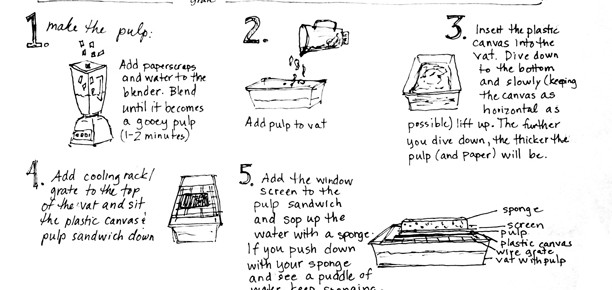 grate
1. make the pulp:
Add paperscraps
and water to the
blender. Blend
until it becomes
a gooey pulp
(1-2 minutes)
2.
Add pulp to vat
3. Insert the plastic
canvas into the
vat. Dive down
to the bottom
and slowly (keeping
the canvas as
horizontal as
possible) lift up. The further
you dive down, the thicker the
pulp (and paper) will be.
4. Add cooling rack/
grate to the top
of the vat and sit
the plastic canvas &
pulp sandwich down
5. Add the window
screen to the
pulp sandwich
and sop up the
water with a sponge.
If you push down
with your sponge
and see a puddle of
water keep sponging
sponge
screen
pulp
plastic canvas
wire grate
vat with pulp